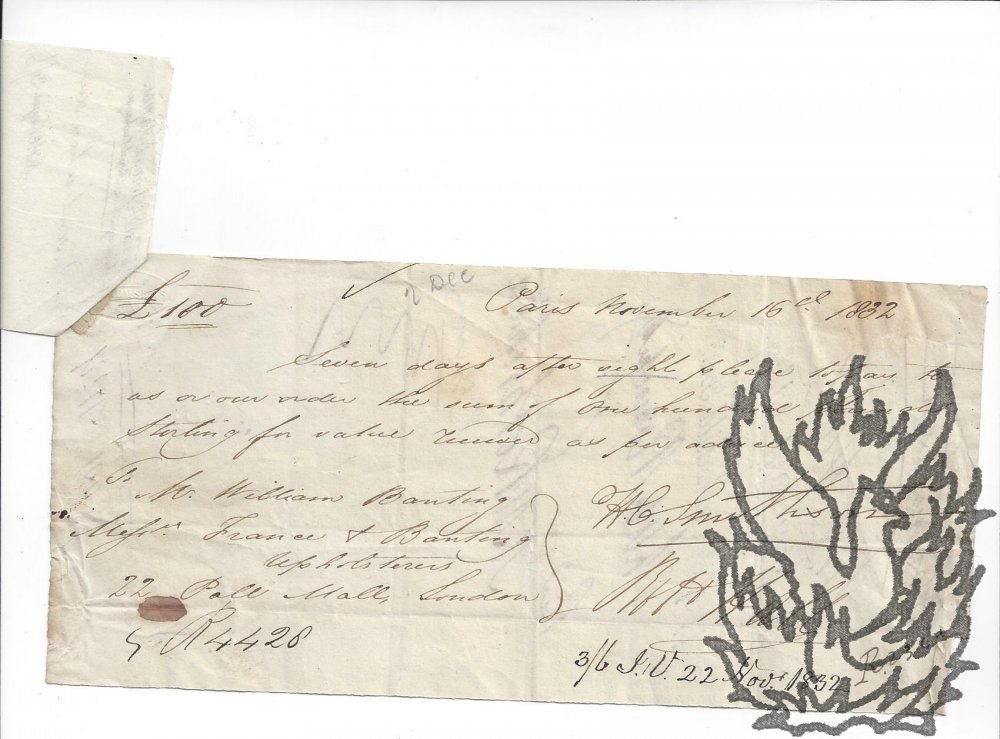 2 Dec
£100
Paris November 16th 1832
Seven days after sight please to pay to
us or our order the sum of One hundred pounds
Sterling for value received as per advice
To Mr. William Banting
Messrs. France & Banting
Upholsterers
22 Pall Mall, London
R4428
H.C. Smithson
3/6 J.V. 22 Novr 1832